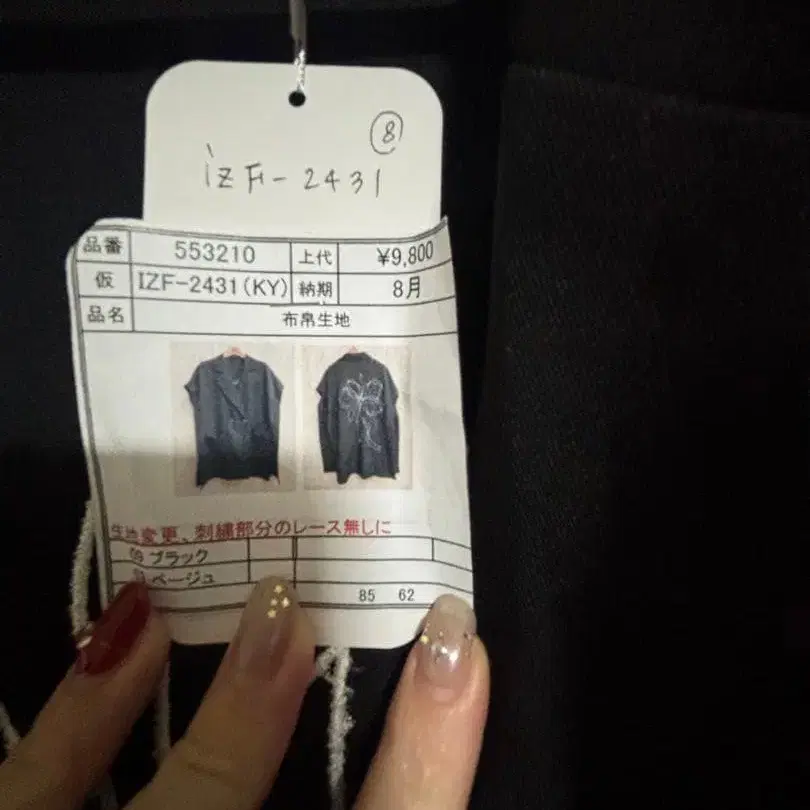 8
IZF-2431
品番 553210 上代 ¥9,800
仮 IZF-2431(KY) 納期 8月
品名 布帛生地
生地変更、刺繍部分のレース無しに
09 ブラック
ベージュ
85 62